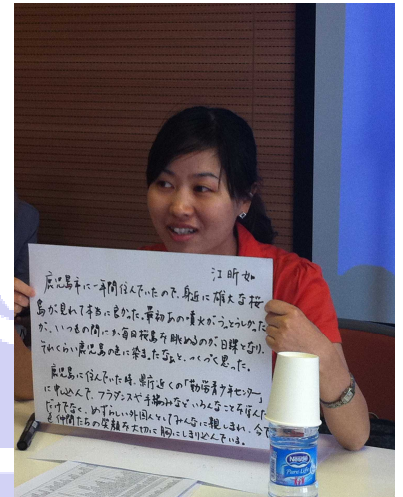 江昕如
鹿児島市に一年間住んでいたので、身近に雄大な桜
島が見れて本当に良かった。最初あの噴火がうっとうしかった
が、いつもの間にか毎日桜島を眺めるのが、日課となり、
それくらい鹿児島の色に染またなぁと、つくづく思った。
鹿児島に住んでいた時、県庁近くの「勤労青少年センター」
に申込んで、フラダンスや手編みなどいろんなことを学んだ
だけでなく、めずらしい外国人としてみんなに親しまれ、今で
も仲間たちの笑顔を大切に胸にしまり込んでいる。
Nestlé
Pure Life